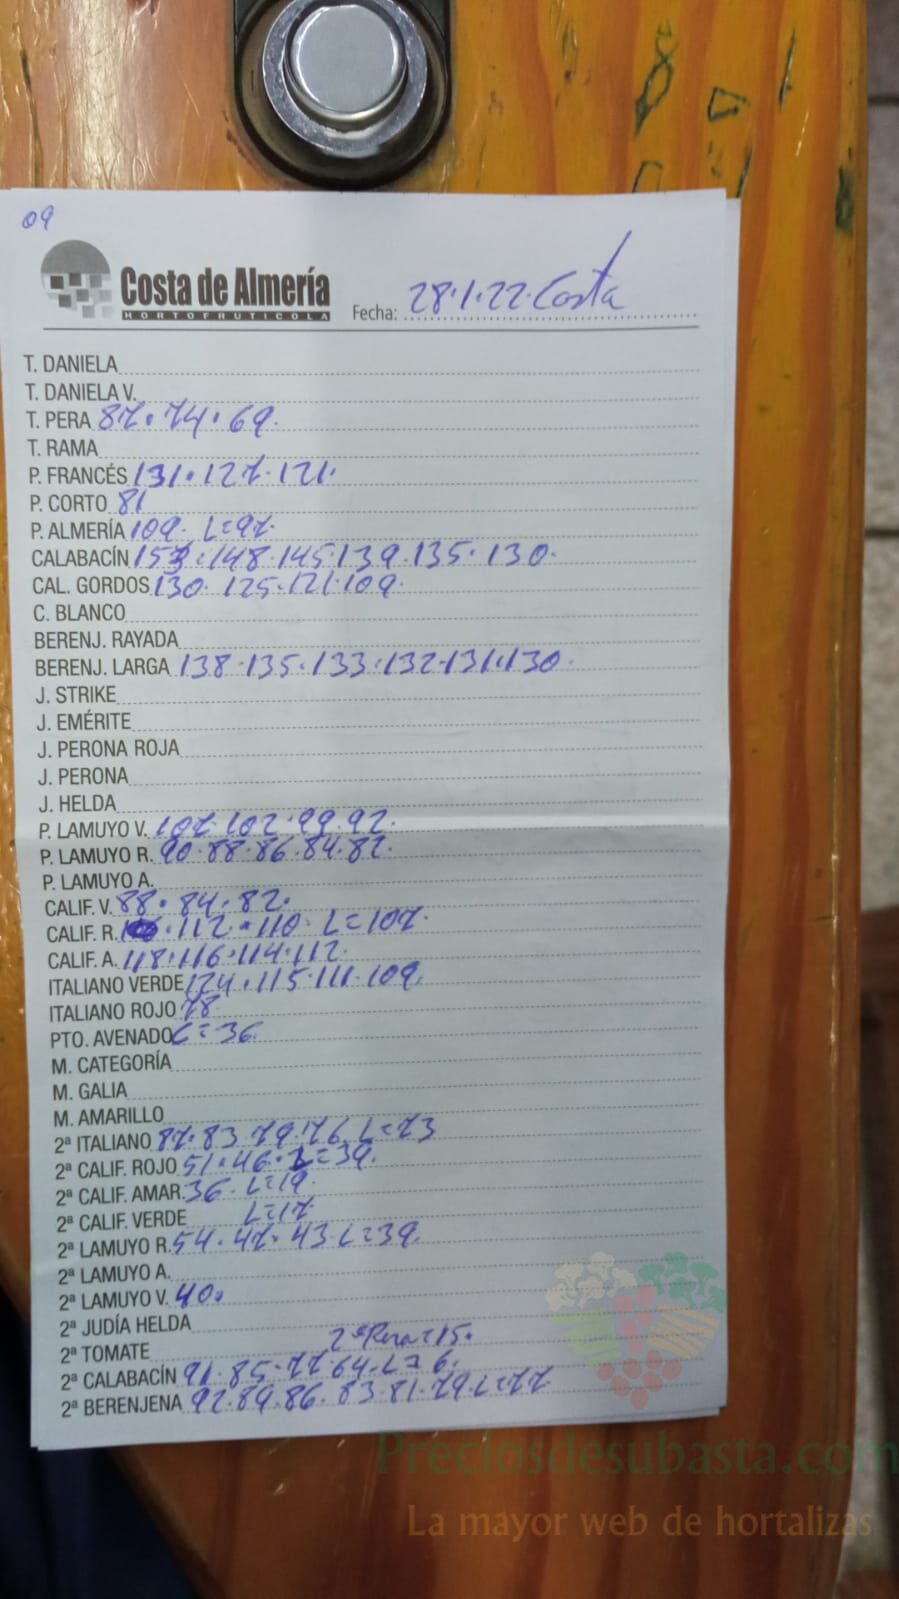 09
Costa de Almería
HORTOFRUTICOLA
Fecha: 28.1.22. Costa
T. DANIELA
T. DANIELA V.
T. PERA 87. 74. 69.
T. RAMA
P. FRANCÉS 131. 127. 121.
P. CORTO 81
P. ALMERÍA 109. L=97.
CALABACÍN 157. 148. 145. 139. 135. 130.
CAL. GORDOS 130. 125. 121. 109.
C. BLANCO
BERENJ. RAYADA
BERENJ. LARGA 138. 135. 133. 132. 131. 130.
J. STRIKE
J. EMÉRITE
J. PERONA ROJA
J. PERONA
J. HELDA
P. LAMUYO V. 107. 102. 99. 92.
P. LAMUYO R. 90. 88. 86. 84. 82.
P. LAMUYO A.
CALIF. V. 88. 84. 82.
CALIF. R. 112. 110. L=107.
CALIF. A. 118. 116. 114. 112.
ITALIANO VERDE 124. 115. 111. 109.
ITALIANO ROJO 78
PTO. AVENADO L=36.
M. CATEGORÍA
M. GALIA
M. AMARILLO
2ª ITALIANO 87. 83. 79. 76. L=73
2ª CALIF. ROJO 51. 46. L=39.
2ª CALIF. AMAR. 36. L=19.
2ª CALIF. VERDE L=17
2ª LAMUYO R. 54. 47. 43. L=39.
2ª LAMUYO A.
2ª LAMUYO V. 40.
2ª JUDÍA HELDA
2ª TOMATE 2ª Pera=15.
2ª CALABACÍN 91. 85. 77. 64. L=6.
2ª BERENJENA 92. 89. 86. 83. 81. 79. L=77
Preciosdesubasta.com
La mayor web de hortalizas